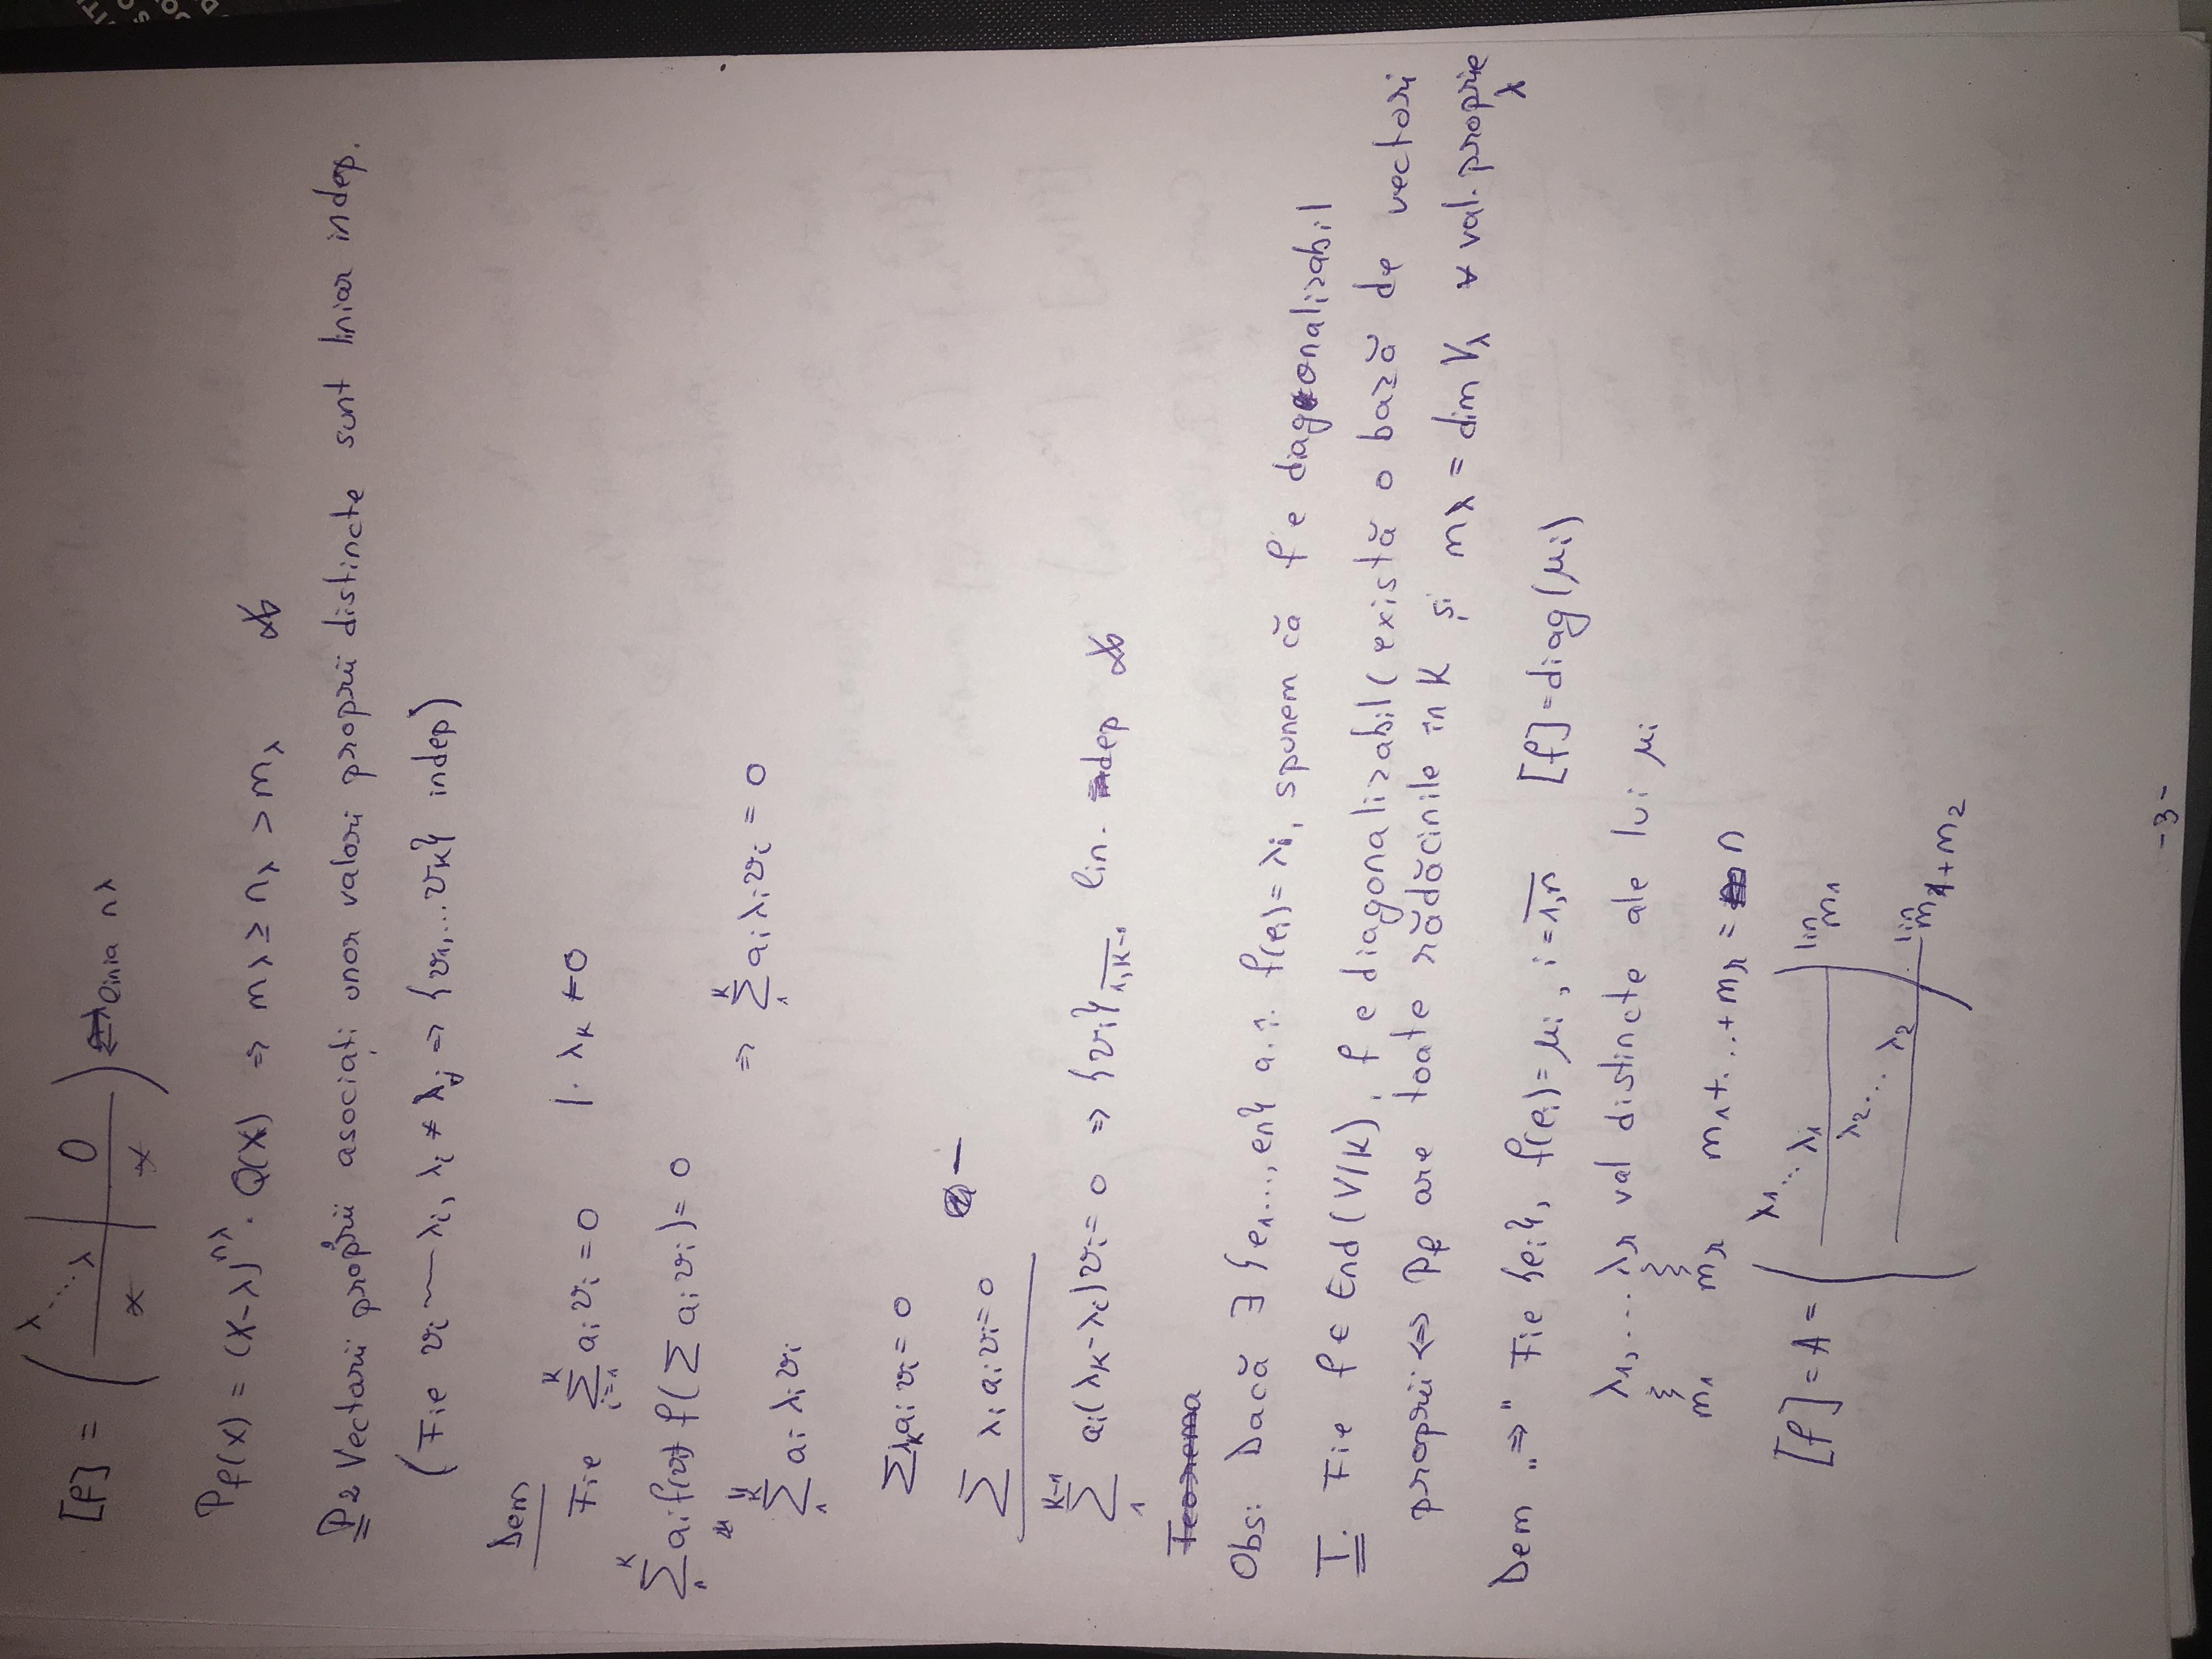 [f] = ( λ ⋱ λ | 0 ) ⇐ linia nλ
( * | * )
P_f(X) = (X-λ)^{nλ} · Q(X) ⇒ m_λ ≥ n_λ > m_λ
P2 Vectorii proprii asociați unor valori proprii distincte sunt liniar indep.
(Fie v_i ~ λ_i, λ_i ≠ λ_j ⇒ {v_1,...v_K} indep)
Dem
Fie ∑_{i=1}^{K} a_i v_i = 0 |· λ_K ≠ 0
∑_1^K a_i f(v_i) f(∑ a_i v_i) = 0
∑_1^K a_i λ_i v_i ⇒ ∑_1^K a_i λ_i v_i = 0
∑ λ_K a_i v_i = 0
∑ λ_i a_i v_i = 0 −
∑_1^{K-1} a_i(λ_K - λ_i) v_i = 0 ⇒ {v_i}_{1,K-1} lin. dep
Teorema
Obs: Dacă ∃ {e_1..., e_n} a.î. f(e_i) = λ_i, spunem că f e diagonalizabil
T. Fie f ∈ End(V/K), f e diagonalizabil (există o bază de vectori
proprii ⇔ P_f are toate rădăcinile în K și m_λ = dim V_λ ∀ val. proprie λ
Dem „⇒" Fie {e_i}, f(e_i) = μ_i, i = 1,n [f] = diag(μ_i)
λ_1, ... λ_r val distincte ale lui μ_i
m_1 m_r m_1 + ... + m_r = n
[f] = A = ( λ_1 ⋱ λ_1 ) lin m_1
λ_2 ⋱ λ_2 lin m_1 + m_2
-3-